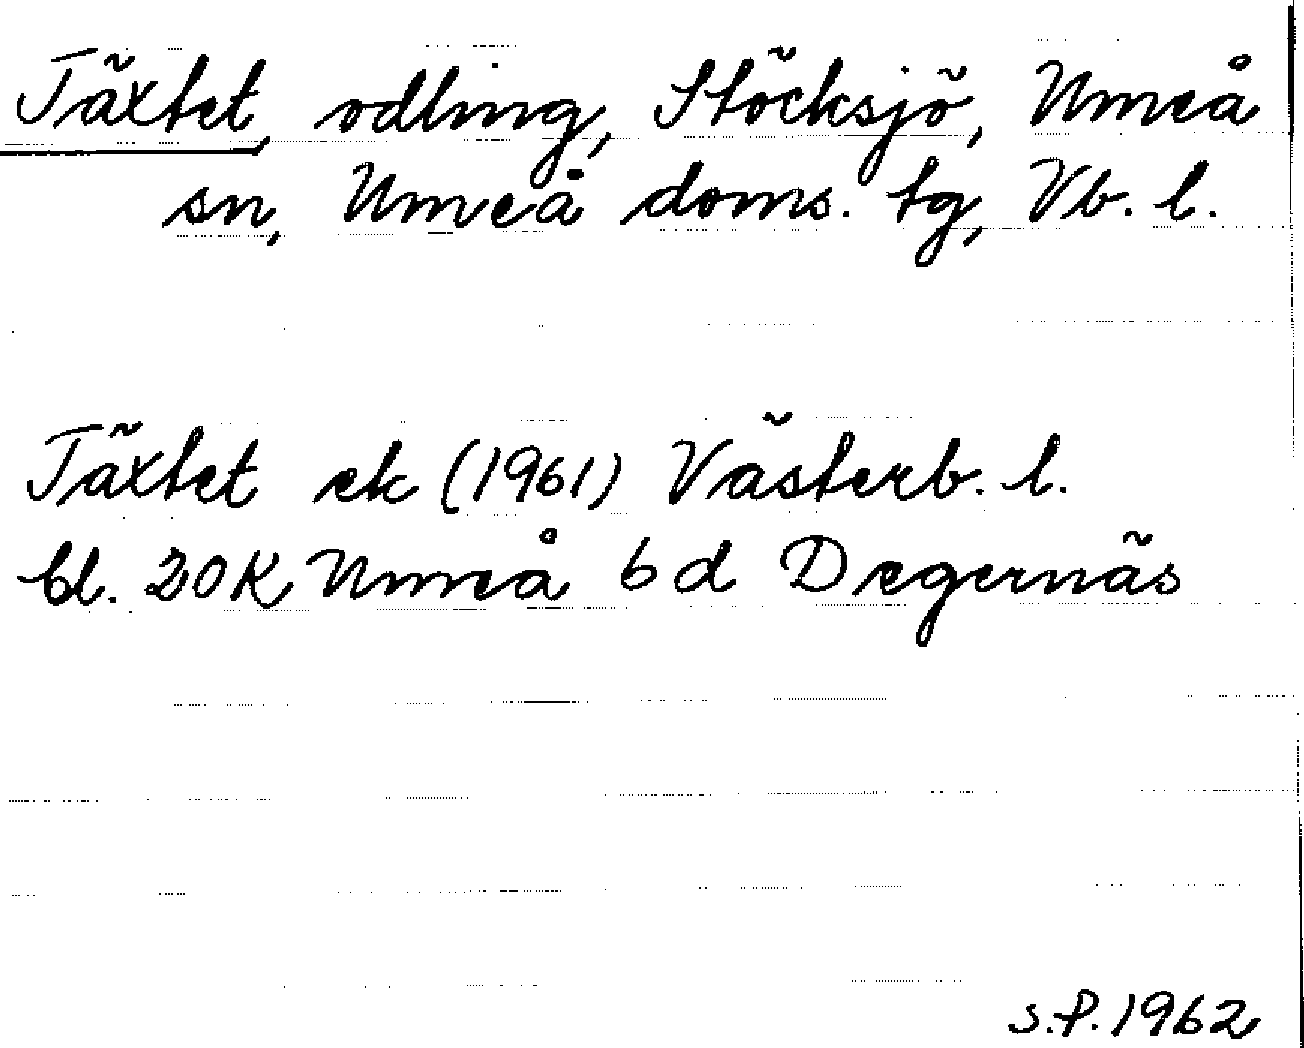 Täxtet, odling, Stöcksjö, Umeå
sn, Umeå doms. tg, Vb. l.
Täxtet ek (1961) Västerb. l.
bl. 20K Umeå 6d Degernäs
S.P. 1962